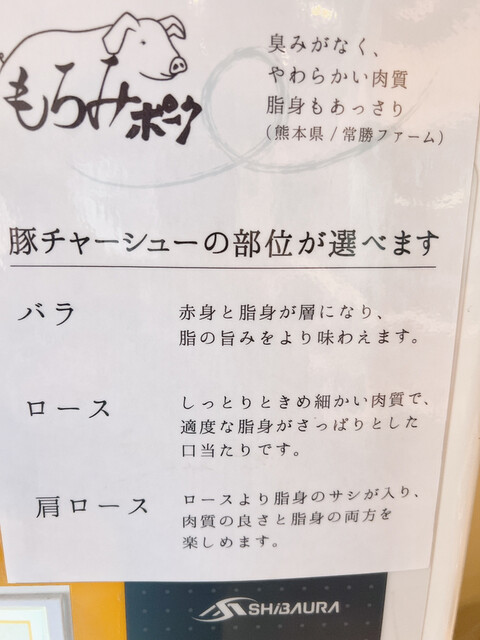 もろみポーク
臭みがなく、
やわらかい肉質
脂身もあっさり
(熊本県/常勝ファーム)
豚チャーシューの部位が選べます
バラ
赤身と脂身が層になり、
脂の旨みをより味わえます。
ロース
しっとりときめ細かい肉質で、
適度な脂身がさっぱりとした
口当たりです。
肩ロース
ロースより脂身のサシが入り、
肉質の良さと脂身の両方を
楽しめます。
SHiBAURA